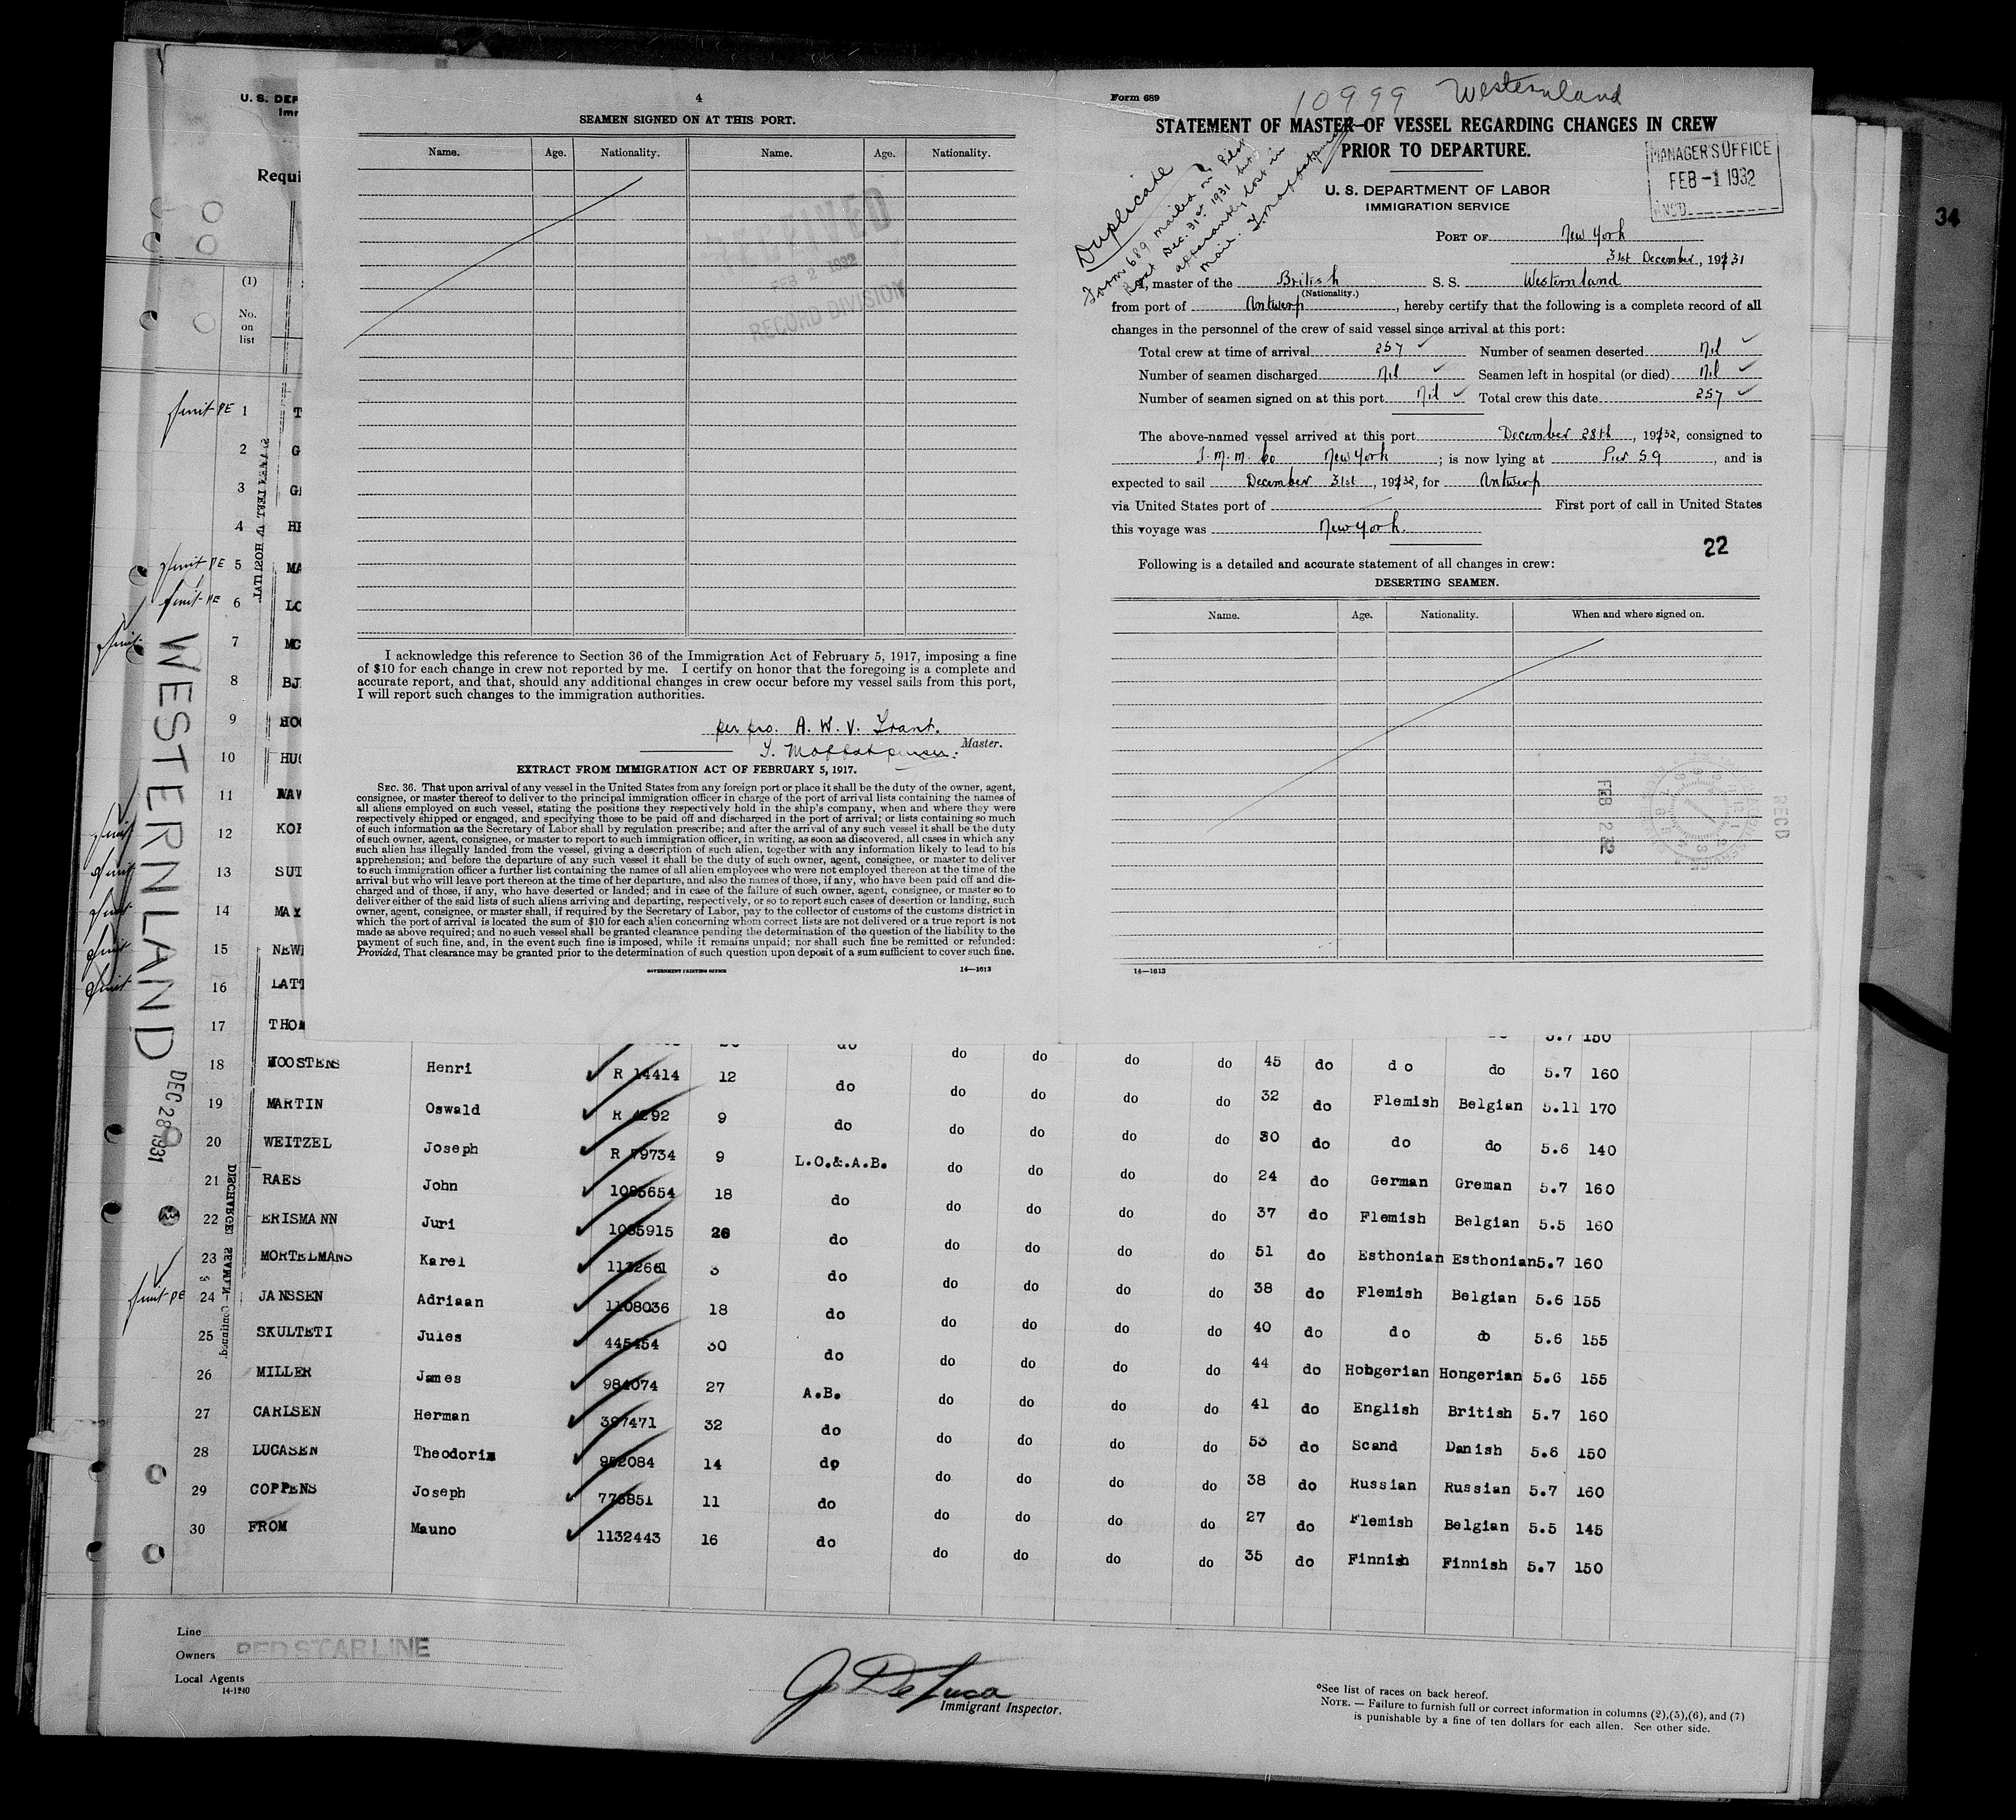 34
U. S. DEP
Imm
Requi
(1)
No.
on
list
1 T
2 G
3 GI
4 HE
5 MA
6 LO
7 MC
8 BJ
9 HO
10 HU
11 WAV
12 KOE
13 SUT
14 MAY
15 NEW
16 LATT
17 THOM
WESTERNLAND
DEC 28 1931
DISCHARGED SEAMEN—Continued.
4
SEAMEN SIGNED ON AT THIS PORT.
Name. Age. Nationality. Name. Age. Nationality.
RECEIVED
FEB 2 1932
RECORD DIVISION
I acknowledge this reference to Section 36 of the Immigration Act of February 5, 1917, imposing a fine
of $10 for each change in crew not reported by me. I certify on honor that the foregoing is a complete and
accurate report, and that, should any additional changes in crew occur before my vessel sails from this port,
I will report such changes to the immigration authorities.
per pro. A. W. V. Trant.
T. Moffat purser. Master.
EXTRACT FROM IMMIGRATION ACT OF FEBRUARY 5, 1917.
SEC. 36. That upon arrival of any vessel in the United States from any foreign port or place it shall be the duty of the owner, agent,
consignee, or master thereof to deliver to the principal immigration officer in charge of the port of arrival lists containing the names of
all aliens employed on such vessel, stating the positions they respectively hold in the ship's company, when and where they were
respectively shipped or engaged, and specifying those to be paid off and discharged in the port of arrival; or lists containing so much
of such information as the Secretary of Labor shall by regulation prescribe; and after the arrival of any such vessel it shall be the duty
of such owner, agent, consignee, or master to report to such immigration officer, in writing, as soon as discovered, all cases in which any
such alien has illegally landed from the vessel, giving a description of such alien, together with any information likely to lead to his
apprehension; and before the departure of any such vessel it shall be the duty of such owner, agent, consignee, or master to deliver
to such immigration officer a further list containing the names of all alien employees who were not employed thereon at the time of the
arrival but who will leave port thereon at the time of her departure, and also the names of those, if any, who have been paid off and dis-
charged and of those, if any, who have deserted or landed; and in case of the failure of such owner, agent, consignee, or master so to
deliver either of the said lists of such aliens arriving and departing, respectively, or so to report such cases of desertion or landing, such
owner, agent, consignee, or master shall, if required by the Secretary of Labor, pay to the collector of customs of the customs district in
which the port of arrival is located the sum of $10 for each alien concerning whom correct lists are not delivered or a true report is not
made as above required; and no such vessel shall be granted clearance pending the determination of the question of the liability to the
payment of such fine, and, in the event such fine is imposed, while it remains unpaid; nor shall such fine be remitted or refunded:
Provided, That clearance may be granted prior to the determination of such question upon deposit of a sum sufficient to cover such fine.
GOVERNMENT PRINTING OFFICE 14—1613
Form 689
10999 Westernland
STATEMENT OF MASTER OF VESSEL REGARDING CHANGES IN CREW
PRIOR TO DEPARTURE.
MANAGER'S OFFICE
FEB -1 1932
ANSD
U. S. DEPARTMENT OF LABOR
IMMIGRATION SERVICE
Duplicate
Form 689 mailed on Pilot
Boat Dec. 31st 1931 but
apparently lost in
mail. T. Moffat purser
PORT OF New York
31st December, 1931
I, master of the British S. S. Westernland
(Nationality.)
from port of Antwerp, hereby certify that the following is a complete record of all
changes in the personnel of the crew of said vessel since arrival at this port:
Total crew at time of arrival 257 Number of seamen deserted nil
Number of seamen discharged nil Seamen left in hospital (or died) nil
Number of seamen signed on at this port nil Total crew this date 257
The above-named vessel arrived at this port December 28th, 1932, consigned to
I. M. M. Co New York; is now lying at Pier 59, and is
expected to sail December 31st, 1932, for Antwerp
via United States port of First port of call in United States
this voyage was New York.
22
Following is a detailed and accurate statement of all changes in crew:
DESERTING SEAMEN.
Name. Age. Nationality. When and where signed on.
FEB 2 32
RECD
14—1613
do do 5.7 150
18 HOOSTENS Henri R 14414 12 do do do do do 45 do do do 5.7 160
19 MARTIN Oswald R 4292 9 do do do do do 32 do Flemish Belgian 5.11 170
20 WEITZEL Joseph R 79734 9 L.O.&.A.B. do do do do 30 do do do 5.6 140
21 RAES John 1085654 18 do do do do do 24 do German Greman 5.7 160
22 ERISMANN Juri 1085915 26 do do do do do 37 do Flemish Belgian 5.5 160
23 MORTELMANS Karel 1132661 3 do do do do do 51 do Esthonian Esthonian 5.7 160
24 JANSSEN Adriaan 1108036 18 do do do do do 38 do Flemish Belgian 5.6 155
25 SKULTETI Jules 445454 30 do do do do do 40 do do do 5.6 155
26 MILLER James 984074 27 A.B. do do do do 44 do Hongerian Hongerian 5.6 155
27 CARLSEN Herman 397471 32 do do do do do 41 do English British 5.7 160
28 LUCASEN Theodoris 952084 14 do do do do do 53 do Scand Danish 5.6 150
29 COPPENS Joseph 773851 11 do do do do do 38 do Russian Russian 5.7 160
30 FROM Mauno 1132443 16 do do do do do 27 do Flemish Belgian 5.5 145
do do do do 35 do Finnish Finnish 5.7 150
Line
Owners RED STAR LINE
Local Agents
14-1240
J. De Luca
Immigrant Inspector.
*See list of races on back hereof.
NOTE. — Failure to furnish full or correct information in columns (2),(5),(6), and (7)
is punishable by a fine of ten dollars for each alien. See other side.